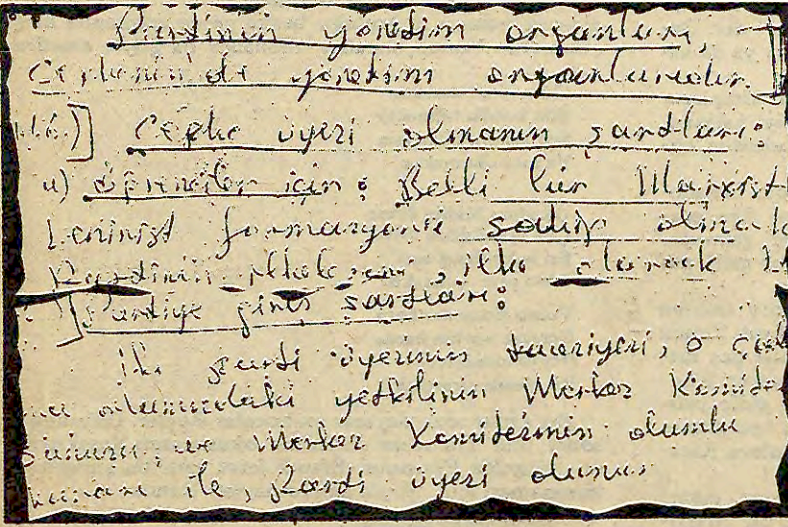 Partinin yönetim organları,
Cephenin de yönetim organlarıdır.
Cephe üyesi olmanın şartları:
a) öğrenciler için: Belli bir Marxist
Leninist formasyona sahip olmak
Partinin ilke olarak
Partiye giriş şartları:
İki parti üyesinin tavsiyesi, o
alanındaki yetkilinin Merkez Komite
Merkez Komitesinin olumlu
ile, Parti üyesi olunur